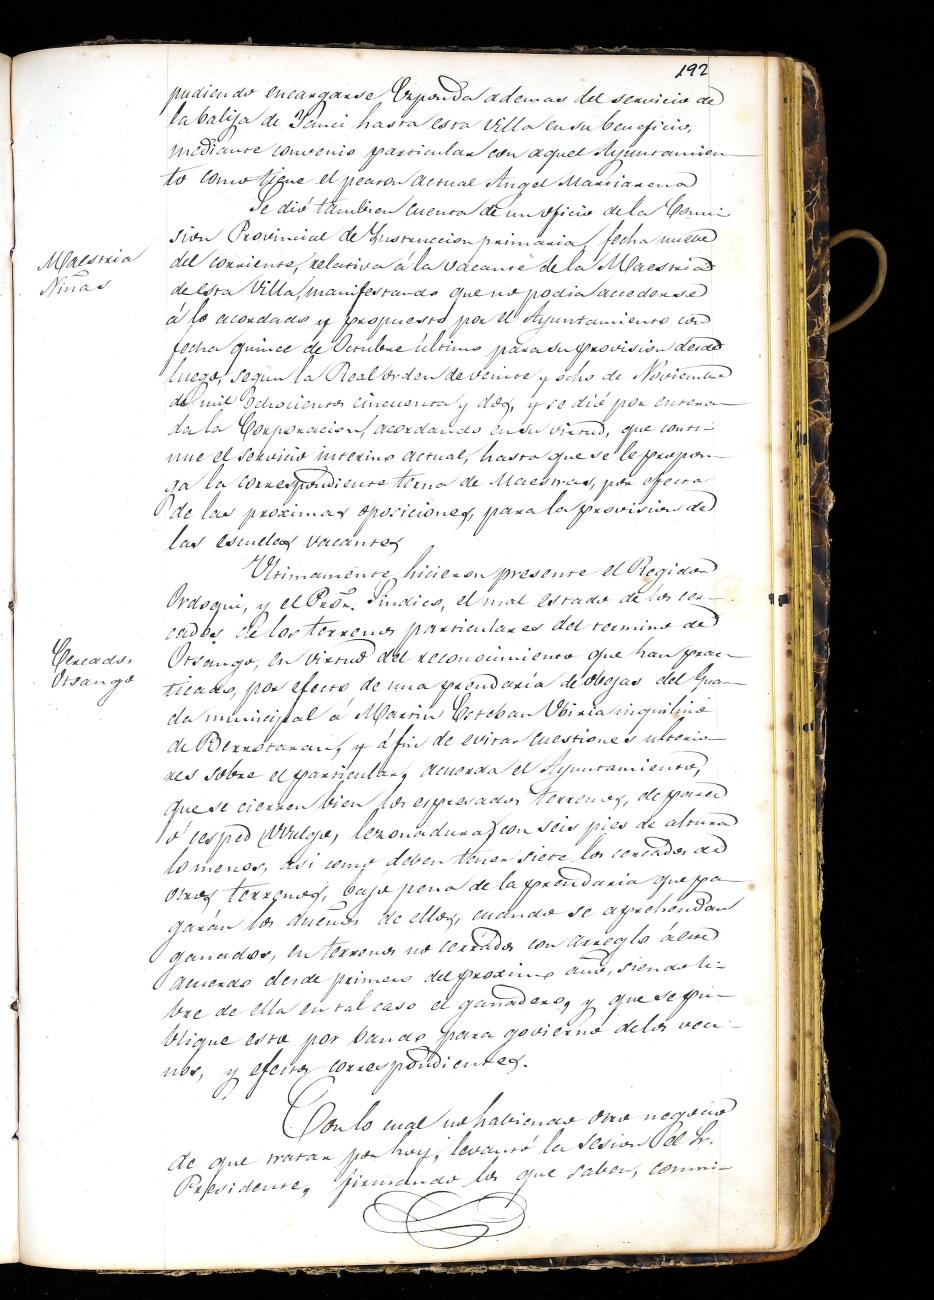 192
pudiendo encargarse Exponda ademas del servicio de
la balija de Yanci hasta esta Villa en su beneficio,
mediante convenio particular con aquel Ayuntamien-
to como tiene el peaton actual Angel Marriarena
Se dió tambien cuenta de un oficio de la Comi
sion Provincial de Instruccion primaria, fecha nueve
Maestria
Niñas
del corriente, relativa á la vacante de la Maestria
de esta Villa, manifestando que no podia accederse
á lo acordado y propuesto por el Ayuntamiento con
fecha quince de Octubre último para su provision desde
luego, segun la Real orden de veinte y ocho de Noviembre
de mil ochocientos cincuenta y dos, y se dió por entera-
da la Corporacion, acordando en su virtud, que conti-
nue el servicio interino actual, hasta que se le propon-
ga la correspondiente terna de Maestras, por efecto
de las proximas oposiciones, para la provision de
las escuelas vacantes
Ultimamente hicieron presente el Regidor
Ordoqui, y el Pror. Sindico, el mal estado de los cer-
cados de los terrenos particulares del termino de
Cercados
Otsango
Otsango, en virtud del reconocimiento que han prac-
ticado, por efecto de una prendaria de obejas del Guar-
da municipal á Martin Esteban Ubiria inquilino
de Berrotaran, y á fin de evitar cuestiones ulterio-
res sobre el particular, acuerda el Ayuntamiento,
que se cierren bien los espresados terrenos, de pared
ó cesped (Vulgo, lezonadura) con seis pies de altura
lo menos, asi como deben tener siete los cercados de
otros terrenos, bajo pena de la prendaria que pa-
garán los dueños de ellos, cuando se aprehendan
ganados, en terrenos no cerrados con arreglo á este
acuerdo desde primero del proximo año, siendo li-
bre de ella en tal caso el ganadero, y que se pu-
blique esto por bando para govierno de los veci-
nos, y efectos correspondientes.
Con lo cual no habiendo otro negocio
de que tratar por hoy, levantó la sesion el Sr.
Presidente, firmando los que saben, conmi-